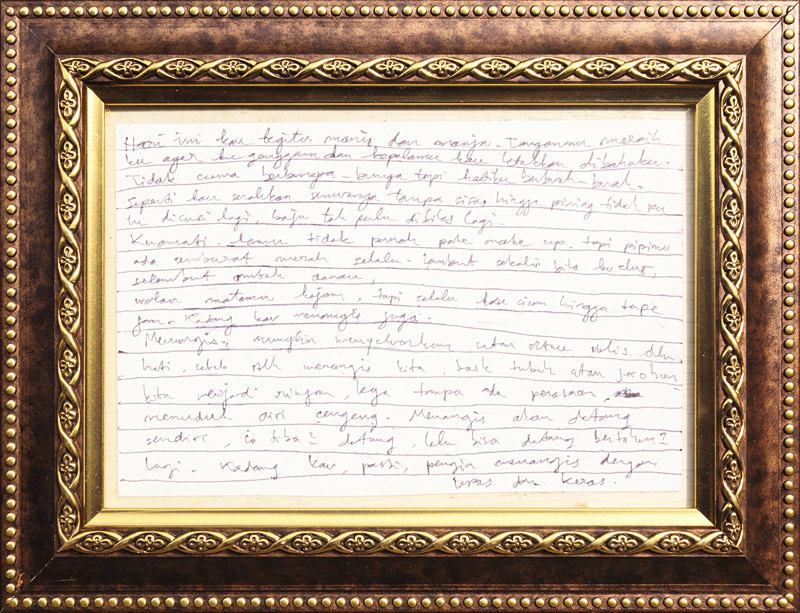 Hari ini kau begitu manis dan manja. Tanganmu meraih
ku agar ku genggam dan kepalamu kau letakkan dibahuku.
Tidak cuma berbunga-bunga tapi hatiku berbuah-buah.
Seperti kau serahkan semuanya tanpa sisa, hingga piring tidak per
lu dicuci lagi, baju tak perlu dibilas lagi.
Kuamati. kamu tidak pernah pake make up. tapi pipimu
ada semburat merah selalu. lembut sekali bila ku elus,
selembut ombak danau,
walau matamu tajam, tapi selalu kau hingga
Kadang kau menangis juga.
Menangis, mungkin mengeluarkan
hati, menangis kita, baik tubuh atau
kita menjadi ringan, lega tanpa ada perasaan,
menuduh diri cengeng. Menangis akan datang
sendiri, ia tiba2 datang, lalu bisa datang bertahun2
lagi. Kadang kau, pasti, pengin menangis dengan
keras dan keras.